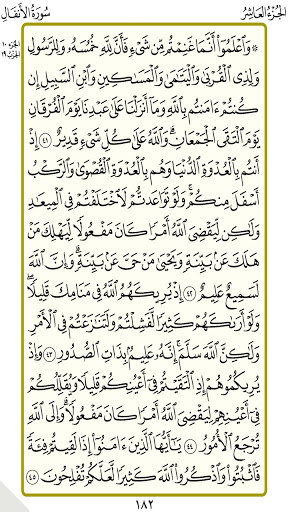 الجزء العاشر سورة الأنفال
الجزء ١٠
الحزب ١٩
۞ وَاعْلَمُوا أَنَّمَا غَنِمْتُم مِّن شَيْءٍ فَأَنَّ لِلَّهِ خُمُسَهُ وَلِلرَّسُولِ
وَلِذِي الْقُرْبَىٰ وَالْيَتَامَىٰ وَالْمَسَاكِينِ وَابْنِ السَّبِيلِ إِن
كُنتُمْ ءَامَنتُم بِاللَّهِ وَمَا أَنزَلْنَا عَلَىٰ عَبْدِنَا يَوْمَ الْفُرْقَانِ
يَوْمَ الْتَقَى الْجَمْعَانِ ۗ وَاللَّهُ عَلَىٰ كُلِّ شَيْءٍ قَدِيرٌ ٤١ إِذْ
أَنتُم بِالْعُدْوَةِ الدُّنْيَا وَهُم بِالْعُدْوَةِ الْقُصْوَىٰ وَالرَّكْبُ
أَسْفَلَ مِنكُمْ ۚ وَلَوْ تَوَاعَدتُّمْ لَاخْتَلَفْتُمْ فِي الْمِيعَادِ
وَلَٰكِن لِّيَقْضِيَ اللَّهُ أَمْرًا كَانَ مَفْعُولًا لِّيَهْلِكَ مَنْ
هَلَكَ عَنۢ بَيِّنَةٍ وَيَحْيَىٰ مَنْ حَيَّ عَنۢ بَيِّنَةٍ ۗ وَإِنَّ اللَّهَ
لَسَمِيعٌ عَلِيمٌ ٤٢ إِذْ يُرِيكَهُمُ اللَّهُ فِي مَنَامِكَ قَلِيلًا ۖ
وَلَوْ أَرَاكَهُمْ كَثِيرًا لَّفَشِلْتُمْ وَلَتَنَازَعْتُمْ فِي الْأَمْرِ
وَلَٰكِنَّ اللَّهَ سَلَّمَ ۗ إِنَّهُ عَلِيمٌۢ بِذَاتِ الصُّدُورِ ٤٣ وَإِذْ
يُرِيكُمُوهُمْ إِذِ الْتَقَيْتُمْ فِي أَعْيُنِكُمْ قَلِيلًا وَيُقَلِّلُكُمْ
فِي أَعْيُنِهِمْ لِيَقْضِيَ اللَّهُ أَمْرًا كَانَ مَفْعُولًا ۗ وَإِلَى اللَّهِ
تُرْجَعُ الْأُمُورُ ٤٤ يَا أَيُّهَا الَّذِينَ ءَامَنُوا إِذَا لَقِيتُمْ فِئَةً
فَاثْبُتُوا وَاذْكُرُوا اللَّهَ كَثِيرًا لَّعَلَّكُمْ تُفْلِحُونَ ٤٥
١٨٢